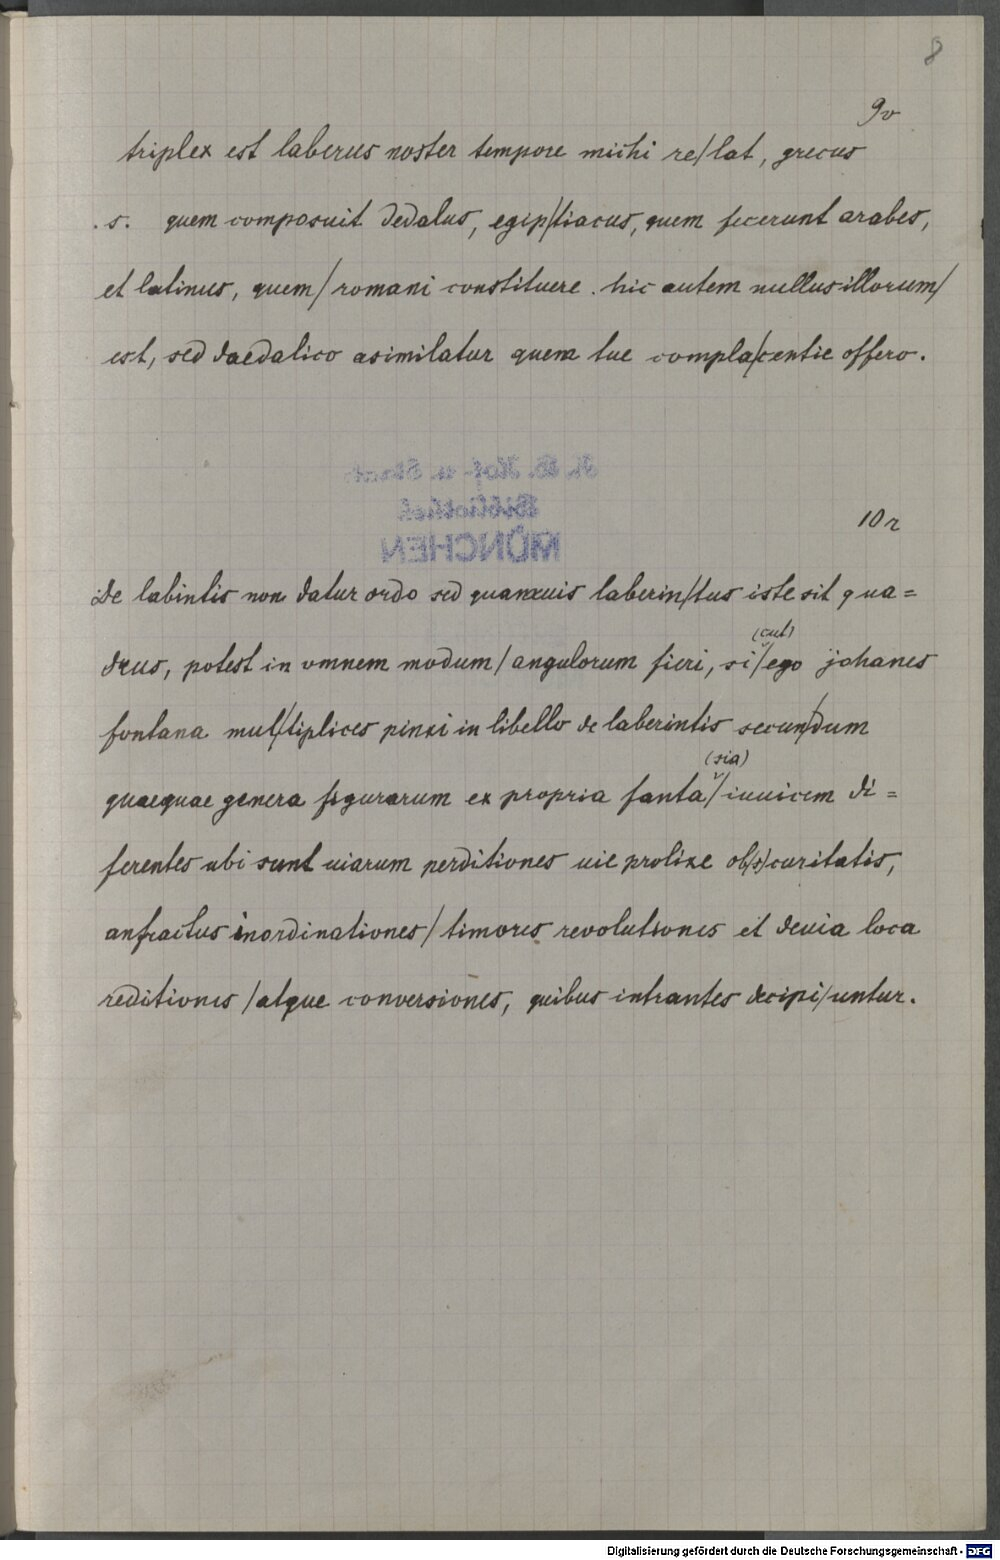 8
9v
triplex est laberus noster tempore michi re/lat, grecus
.s. quem composuit dedalus, egip/tiacus, quem fecerunt arabes,
et latinus, quem/ romani constituere. hic autem nullus illorum/
est, sed daedalico asimilatur quem tue compla/centie offero.
K. B. Hof- u. Staats-
Bibliothek
MÜNCHEN
10r
De labintis non datur ordo sed quamuis laberin/tus iste sit qua=
drus, potest in omnem modum/ angulorum fieri, si/ego johanes
(cut)
fontana mul/tiplices pinxi in libello de laberintis secun/dum
(sia)
quaequae genera figurarum ex propria fanta/inuicem di=
ferentes ubi sunt uiarum perditiones uie prolixe ob(s)curitatis,
anfractus inordinationes/ timores revolutiones et deuia loca
reditiones /atque conversiones, quibus intrantes decipi/untur.
Digitalisierung gefördert durch die Deutsche Forschungsgemeinschaft - DFG